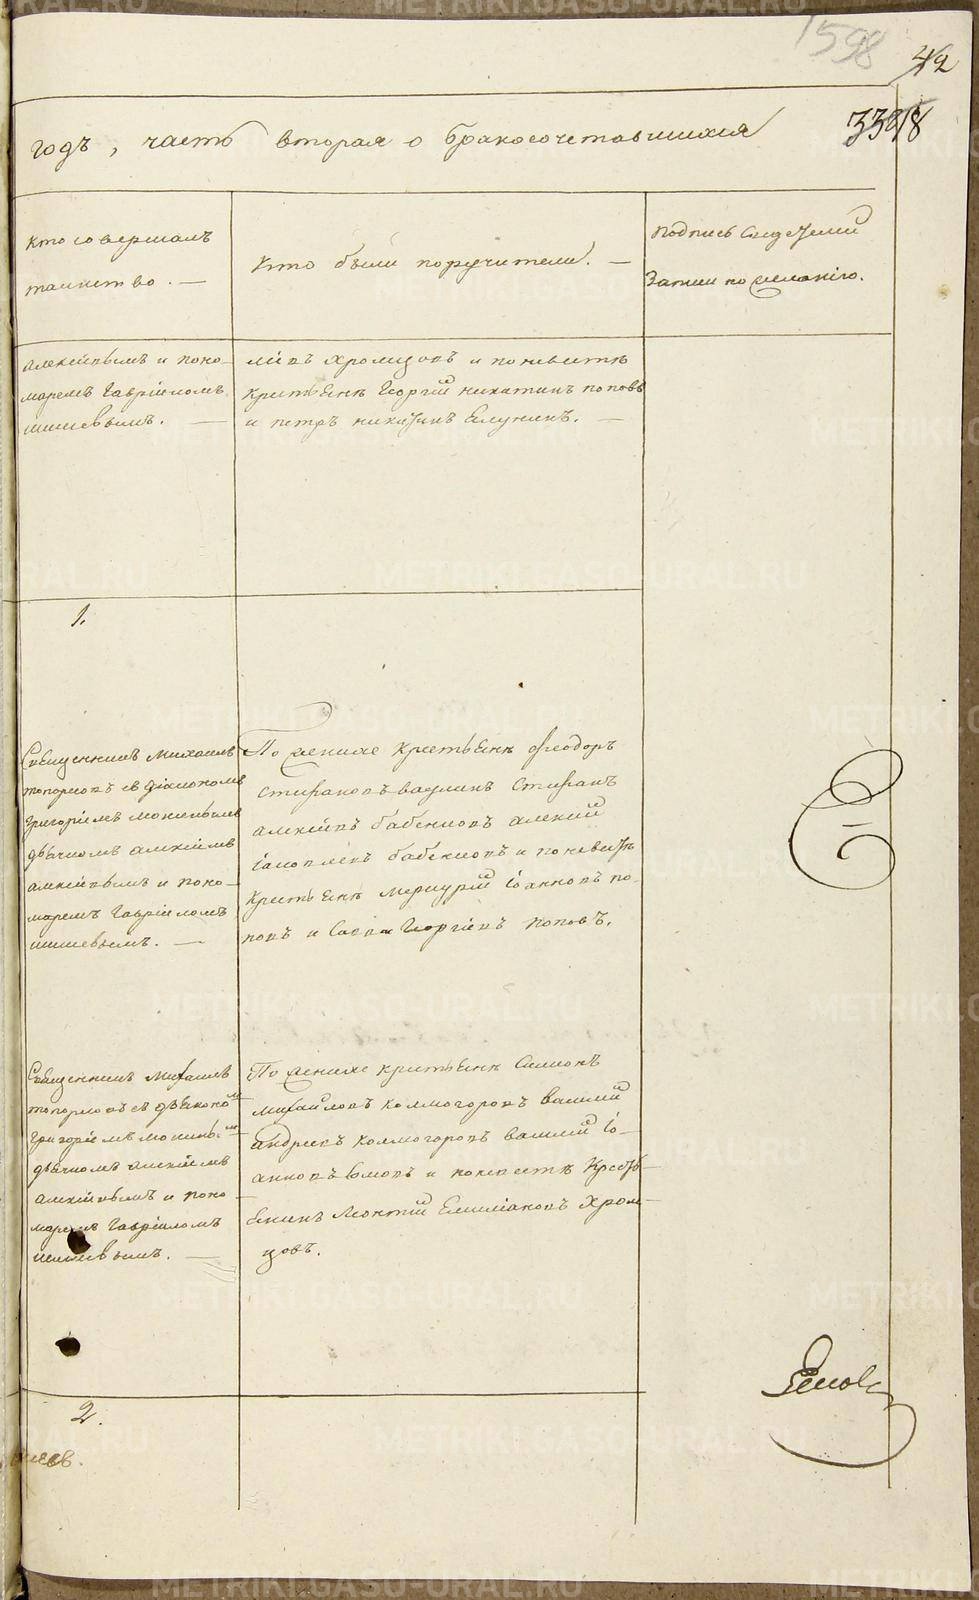 1598
42
годъ, часть вторая о бракосочетавшихся
338
кто совершалъ
таинство. —
Кто были поручители. —
подпись свидетелей
Записи по желанію.
алексіевымъ и поно-
маремъ Гавріиломъ
шишевымъ. —
ліевъ Хромцовъ и по невестѣ
Крестьяне Георгій никитинъ поповъ
и петръ никитинъ Елунинъ. —
1.
Священникъ Михаилъ
топорковъ съ діакономъ
Григоріемъ
дьячкомъ алексіемъ
алексіевымъ и поно-
маремъ Гавріиломъ
шишевымъ. —
По женихе крестьяне феодоръ
Стефановъ ваулинъ Стефанъ
алексіевъ бабенковъ алексій
Іаковлевъ бабенковъ и по невестѣ
Крестьяне меркурій Іоанновъ по-
повъ и Савва Георгіевъ поповъ.
Священникъ Михаилъ
топорковъ съ діакономъ
Григоріемъ
дьячкомъ алексіемъ
алексіевымъ и поно-
маремъ Гавріиломъ
шишевымъ. —
По женихе крестьяне Симеонъ
михайловъ колмогоровъ василій
андреевъ колмогоровъ василій Іо-
анновъ и по невестѣ Кресть-
янинъ Леонтій Емиліановъ Хром-
цовъ.
2.